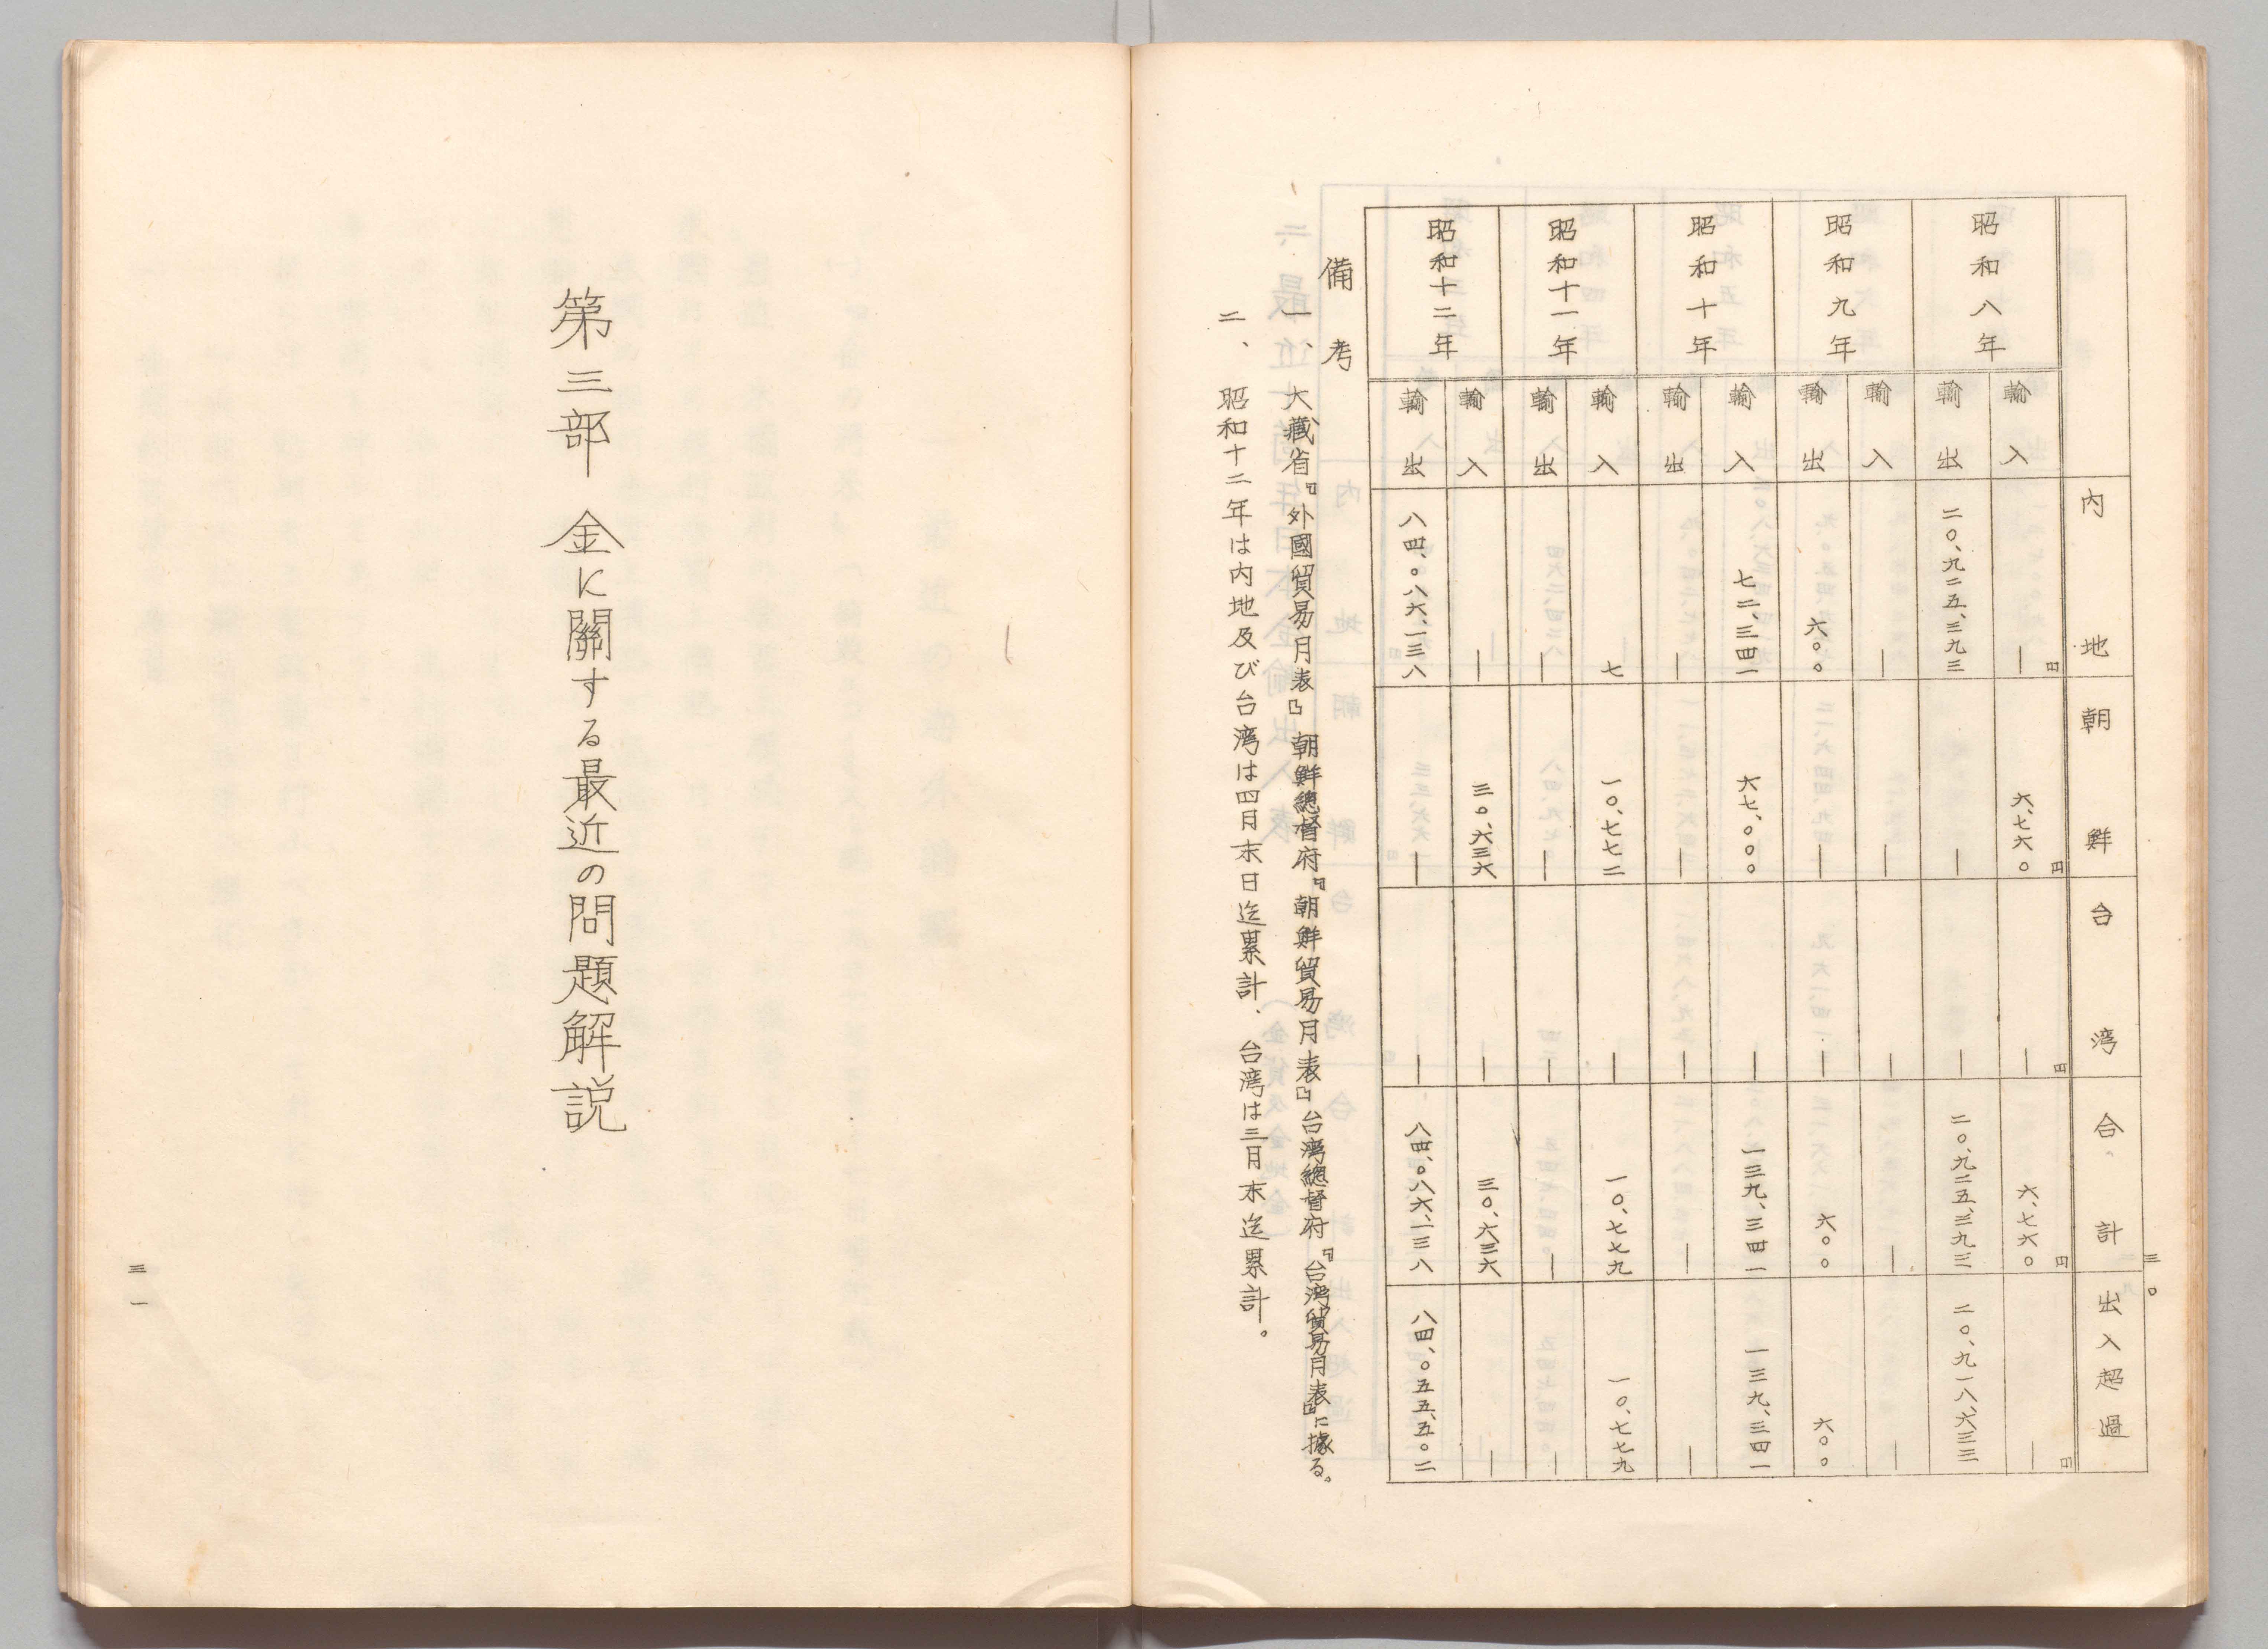 内地 朝鮮 台湾 合計 出入超過
円 円 円 円 円
昭和八年 輸入 — 六、七六〇 — 六、七六〇 —
輸出 二〇、九二五、三九三 — — 二〇、九二五、三九三 二〇、九一八、六三三
昭和九年 輸入 — — — — —
輸出 六〇〇 — — 六〇〇 六〇〇
昭和十年 輸入 七二、三四一 六七、〇〇〇 — 一三九、三四一 一三九、三四一
輸出 — — — — —
昭和十一年 輸入 七 一〇、七七二 — 一〇、七七九 一〇、七七九
輸出 — — — — —
昭和十二年 輸入 — 三〇、六三六 — 三〇、六三六 —
輸出 八四、〇八六、一三八 — — 八四、〇八六、一三八 八四、〇五五、五〇二
備考
一、大藏省『外國貿易月表』朝鮮總督府『朝鮮貿易月表』台湾總督府『台湾貿易月表』に據る。
二、昭和十二年は内地及び台湾は四月末日迄累計、台湾は三月末迄累計。
三〇
第三部 金に關する最近の問題解説
三一